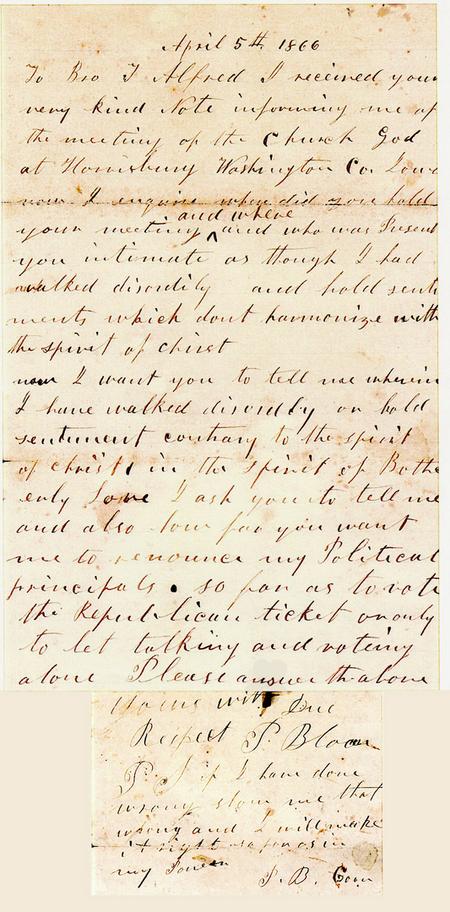 April 5th 1866
To Bro T Alfred I received your
very kind Note informing me of
the meeting of the Church God
at Harrisburg Washington Co. Iowa
now I enquire when did you hold
and where
your meeting ^ and who was Present
you intimate as though I had
walked disordily and hold senti
ments which dont harmonize with
the spirit of christ
now I want you to tell me wherein
I have walked disordly or hold
sentiment contrary to the spirit
of christ in the spirit of Both
erly Love I ask you to tell me
and also how far you want
me to renounce my Political
principals. so far as to vote
the Republican ticket or only
to let talking and voteing
alone Please answer the above
Yours with Due
Respect P. Bloom
P. S if I have done
wrong show me that
wrong and I will make
it right so far as in
my Power
P. B.